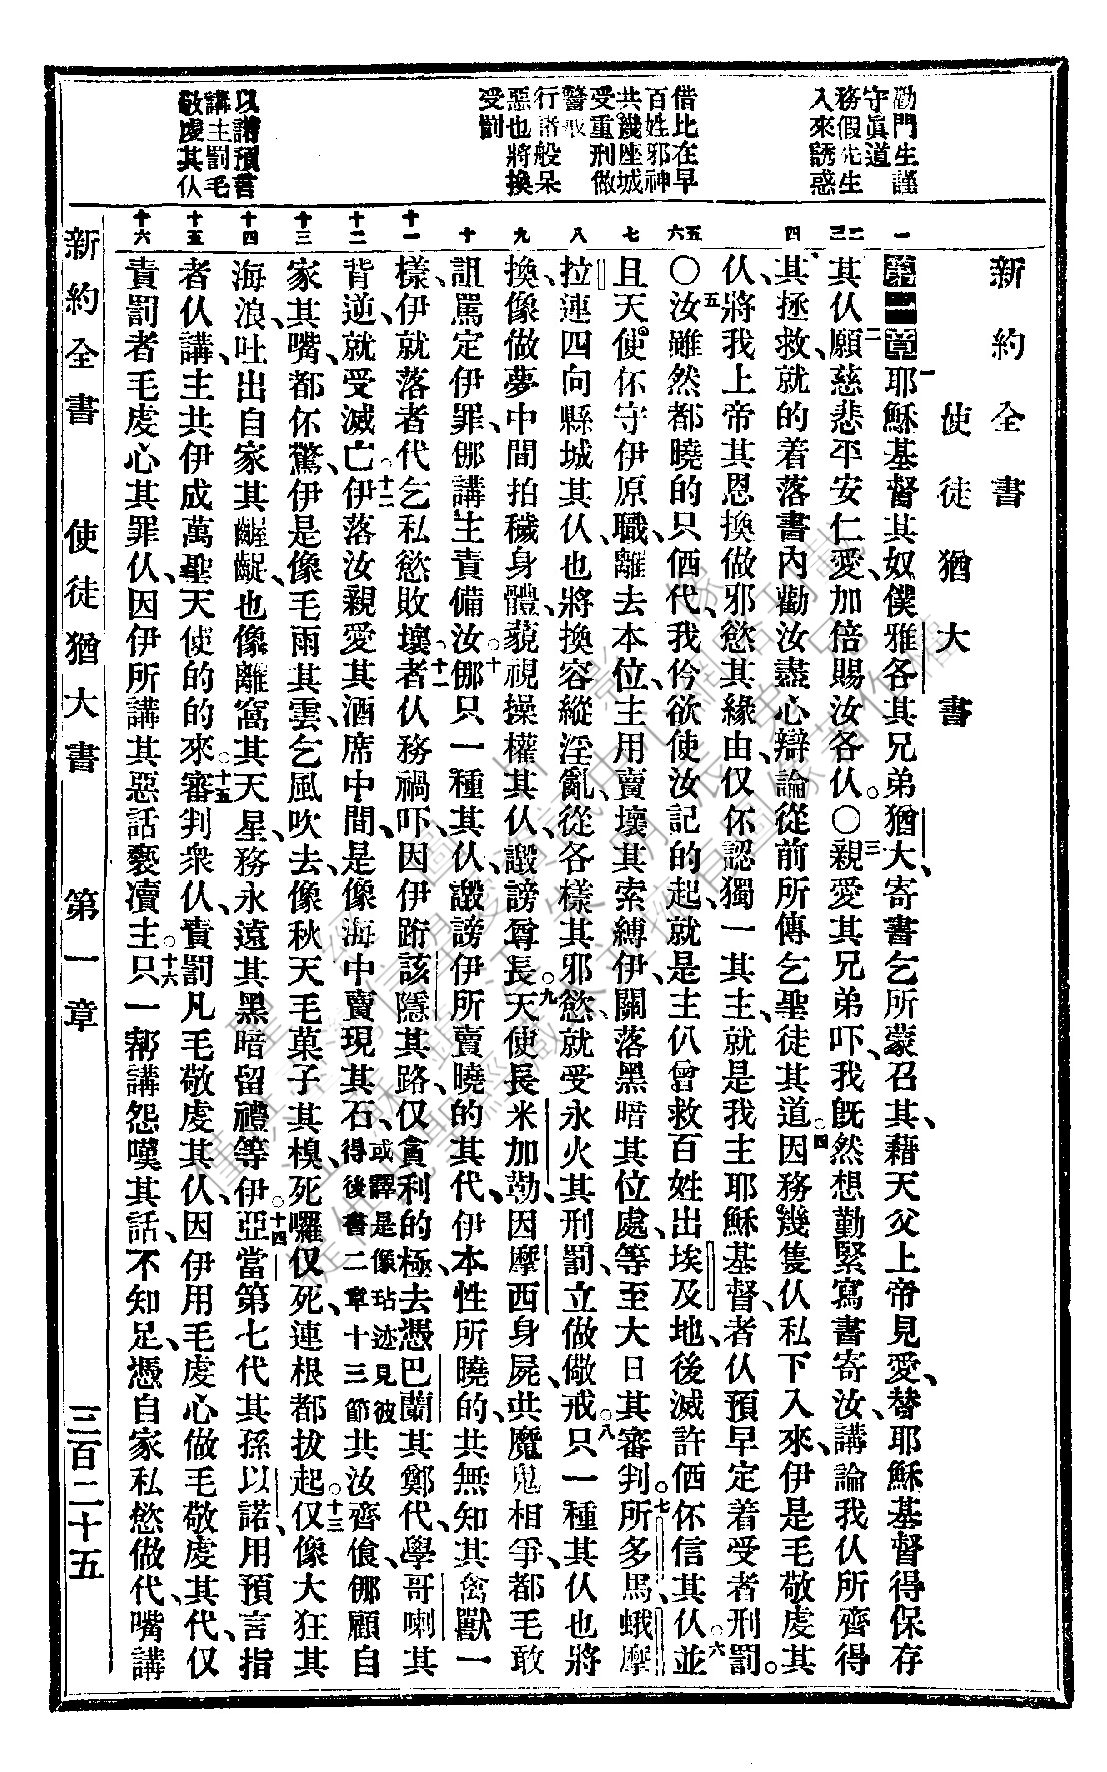 勸門生謹
守眞道
務假先生
入來誘惑
借比在早
百姓邪神
共幾座城
受重刑做
警戒
行諸般呆
惡也將換
受罰
以諾預言
講主罰毛
敬虔其仪
新約全書
使徒猶大書
一
第一章一耶穌基督其奴僕雅各其兄弟猶大、寄書乞所蒙召其、藉天父上帝見愛、替耶穌基督得保存
二三
其仪、二願慈悲平安仁愛、加倍賜汝各仪。〇三親愛其兄弟吓、我旣然想勤緊寫書寄汝、講論我仪所齊得
四
其拯救、就的着落書內勸汝盡心辯論從前所傳乞聖徒其道。四因務幾隻仪私下入來、伊是毛敬虔其
仪、將我上帝其恩換做邪慾其緣由、仅伓認獨一其主、就是我主耶穌基督、者仪預早定着受者刑罰。
五六
〇五汝雖然都曉的、只価代、我仱欲使汝記的起、就是主仈曾救百姓出埃及地、後滅許価伓信其仪、並
七
且天使伓守伊原職、離去本位、主用賣壞其索縛伊、關落黑暗其位處、等至大日其審判。七所多馬蛾摩
八
拉連四向縣城其仪、也將換容縱淫亂、從各樣其邪慾、就受永火其刑罰、立做儆戒。八只一種其仪也將
九
換、像做夢中間拍穢身體、藐視操權其仪、譭謗尊長。九天使長米加勒、因摩西身屍、共魔鬼相爭、都毛敢
十
詛罵定伊罪、㑚講、主責備汝。十㑚只一種其仪、譭謗伊所賣曉的其代、伊本性所曉的、共無知其禽獸一
十一
樣、伊就落者代乞私慾敗壞。十一者仪務禍吓、因伊跡該隱其路、仅貪利的極、去憑巴蘭其鄭代、學哥喇其
十二
背逆、就受滅亡。十二伊落汝親愛其酒席中間、是像海中賣現其石、或譯是像玷迹見彼得後書二章十三節共汝齊飱、㑚顧自
十三
家其嘴、都伓驚、伊是像毛雨其雲、乞風吹去、像秋天毛菓子其樹、死囉仅死、連根都拔起。十三仅像大狂其
十四
海浪、吐出自家其齷齪、也像離窩其天星、務永遠其黑暗留禮等伊。十四亞當第七代其孫以諾、用預言指
十五
者仪講、主共伊成萬聖天使的的來。十五審判衆仪、責罰凡毛敬虔其仪、因伊用毛虔心做毛敬虔其代、仅
十六
責罰者毛虔心其罪仪、因伊所講其惡話褻瀆主。十六只一幇講怨嘆其話、不知足、憑自家私慾做代、嘴講
新約全書　使徒猶大書　第一章　三百二十五